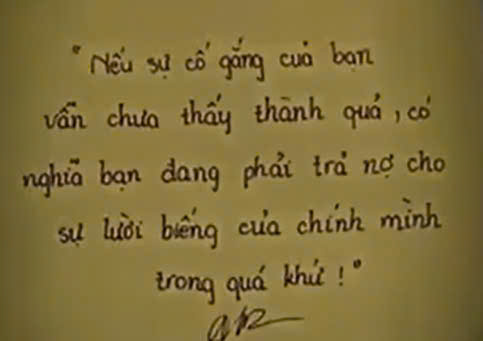 "Nếu sự cố gắng của bạn
vẫn chưa thấy thành quả, có
nghĩa bạn đang phải trả nợ cho
sự lười biếng của chính mình
trong quá khứ!"